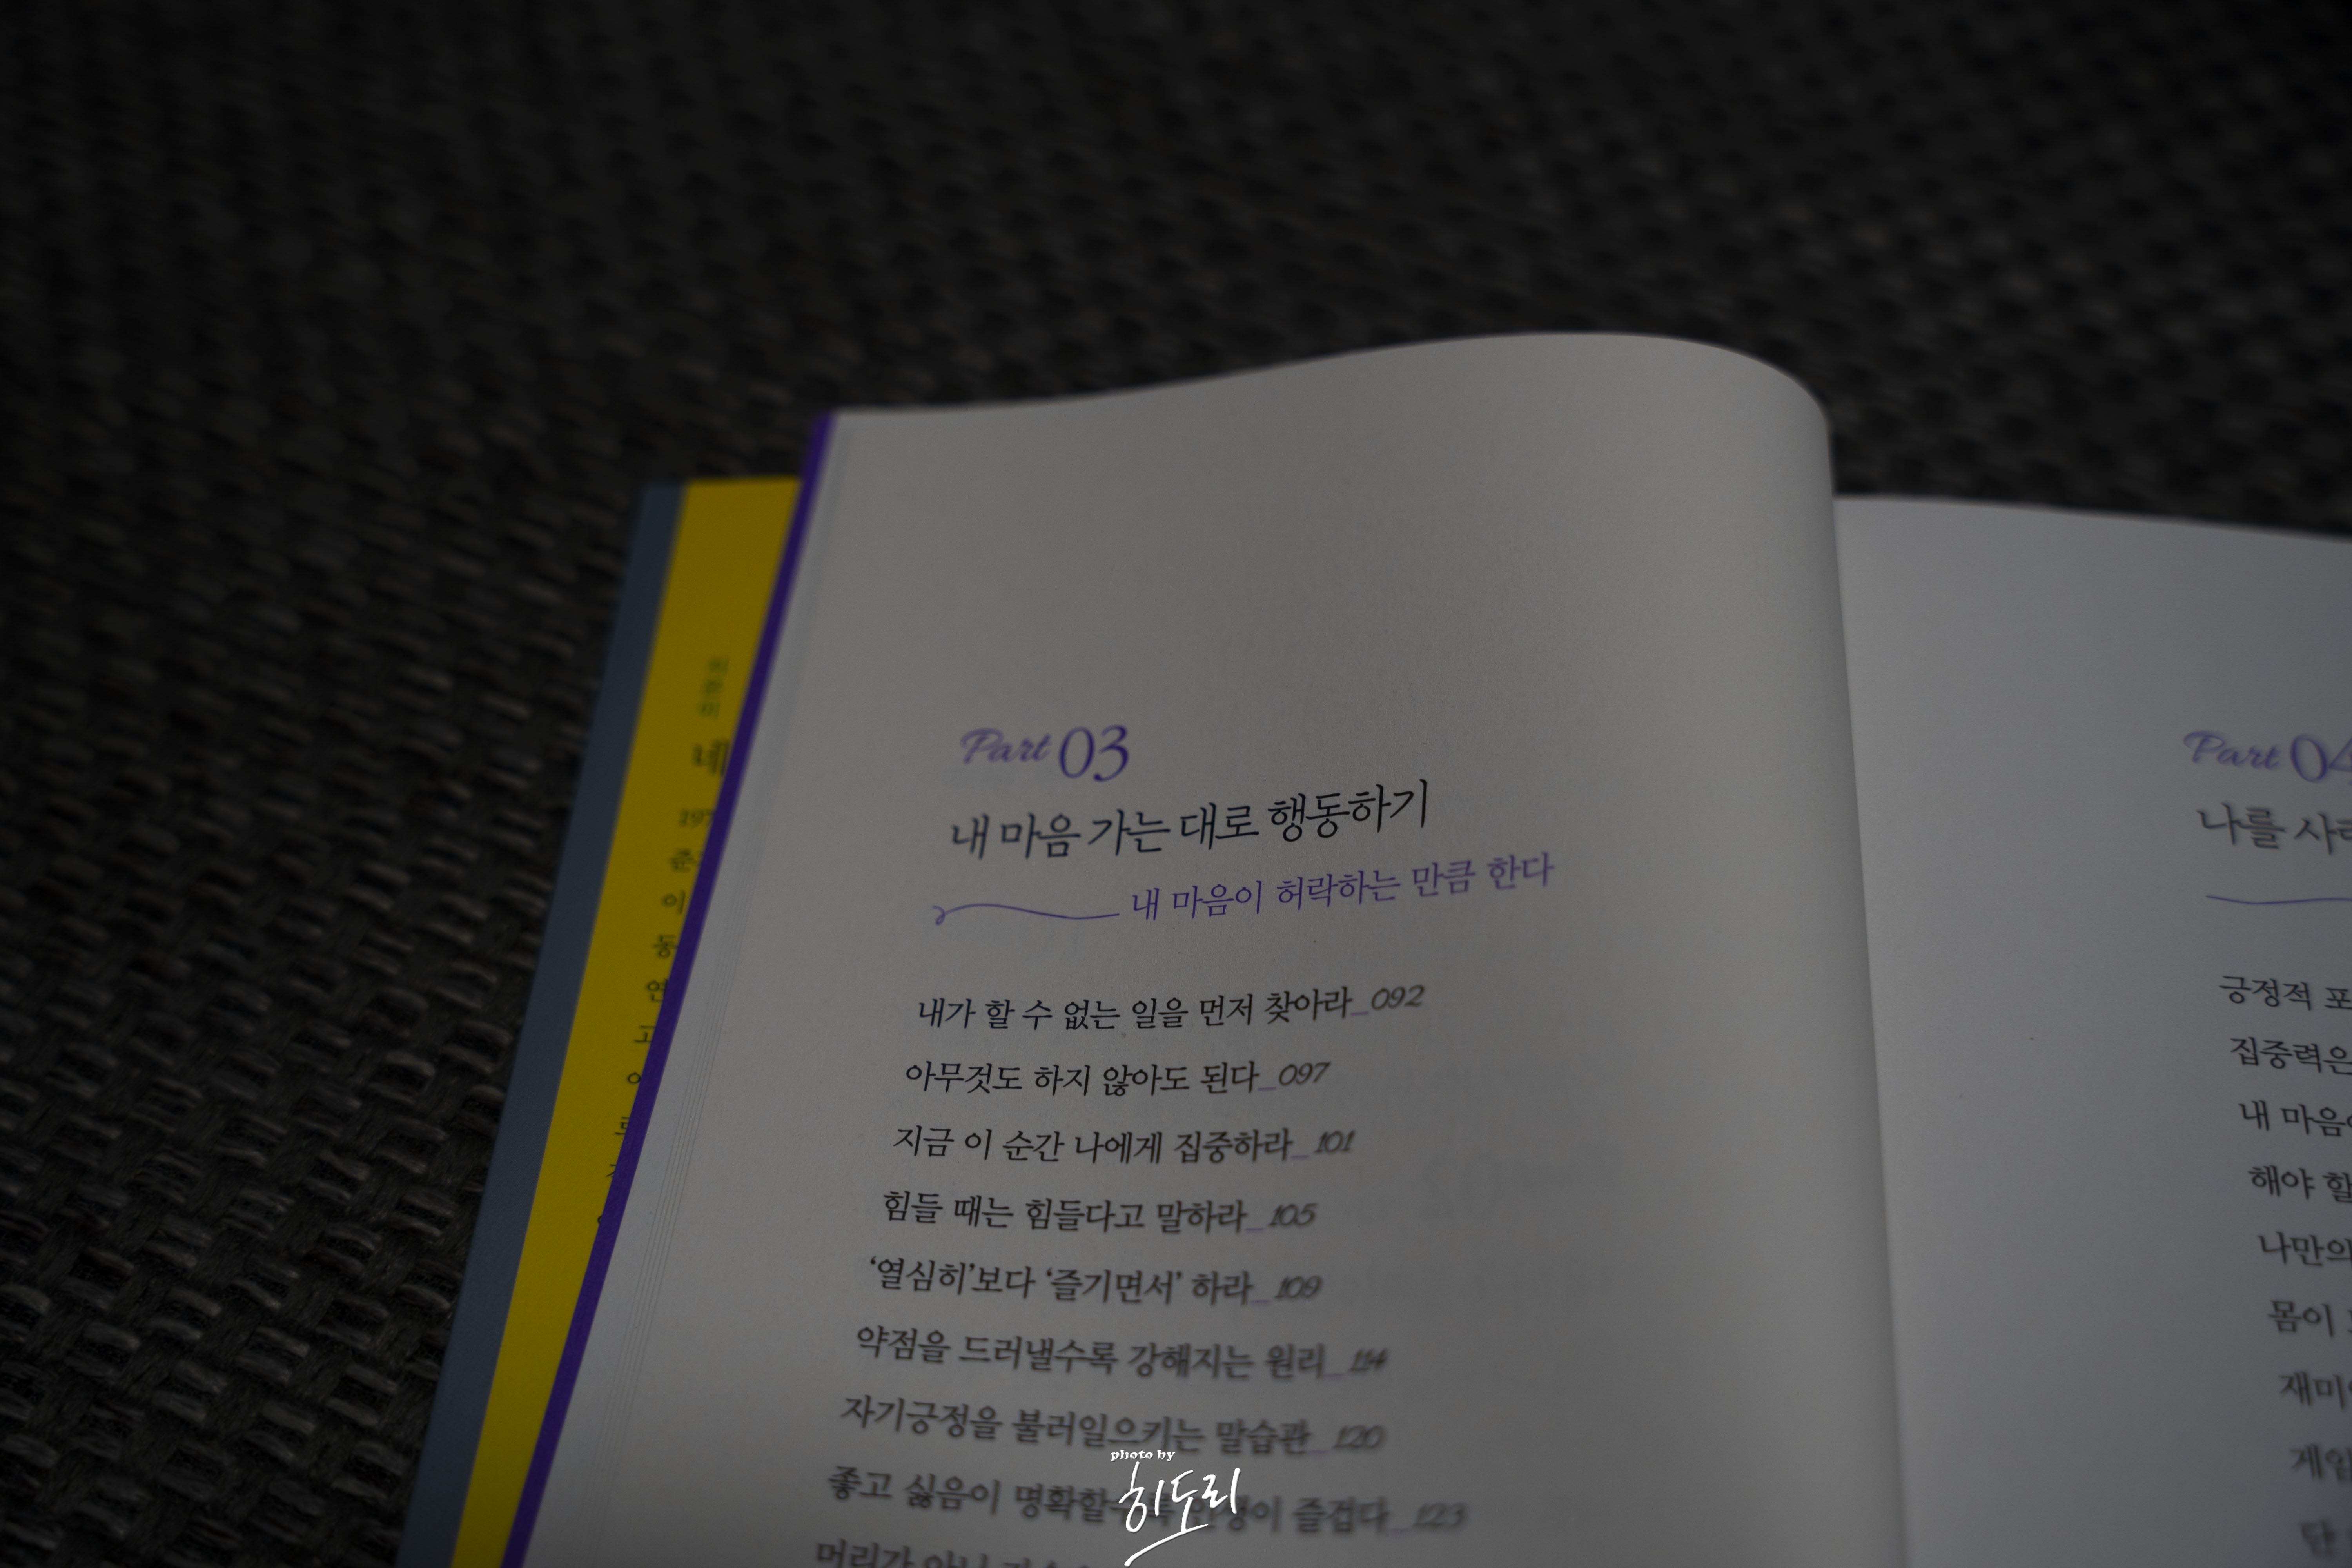 Part 03
내 마음 가는 대로 행동하기
내 마음이 허락하는 만큼 한다
내가 할 수 없는 일을 먼저 찾아라_092
아무것도 하지 않아도 된다_097
지금 이 순간 나에게 집중하라_101
힘들 때는 힘들다고 말하라_105
‘열심히’보다 ‘즐기면서’ 하라_109
약점을 드러낼수록 강해지는 원리_114
자기긍정을 불러일으키는 말습관_120
좋고 싫음이 명확할수록 인생이 즐겁다_123
머리가 아닌
Part 04
나를
긍정적
집중력은
내
해야
나만의
몸이
photo by
히도리